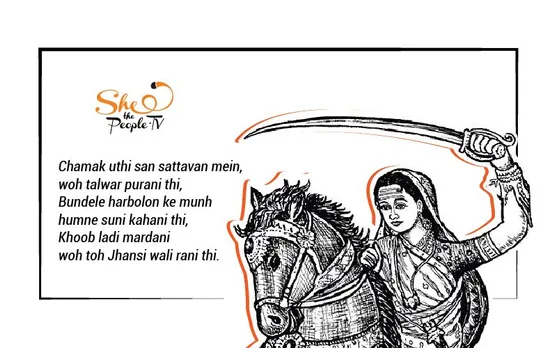 She
the
People.TV
Chamak uthi san sattavan mein,
woh talwar purani thi,
Bundele harbolon ke munh
humne suni kahani thi,
Khoob ladi mardani
woh toh Jhansi wali rani thi.